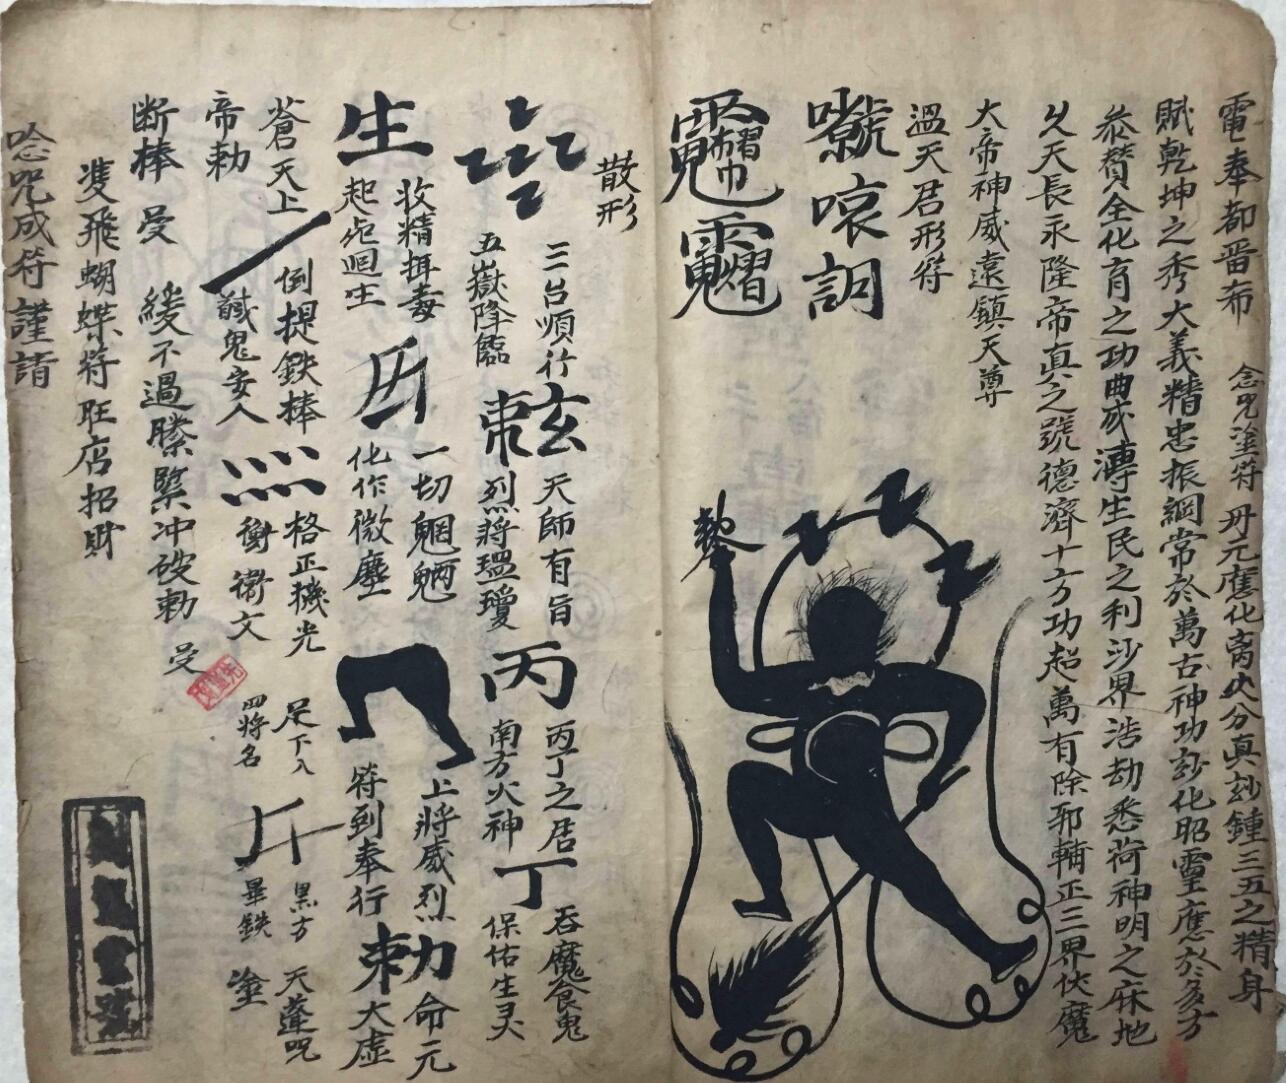 電奉都晋布 念咒塗符 丹元應化离火分真玅鍾三五之精身
賦乾坤之秀大義精忠振綱常於萬古神功玅化昭靈應於多方
叅賛全化育之功曲成溥生民之利沙界浩劫悉荷神明之庥地
乆天長永隆帝真之號德濟十方功超萬有除邪輔正三界伏魔
大帝神威遠鎮天尊
溫天君形符
哀
散形
三台順行
五嶽降臨
玄
天師有旨
烈將瑥瓊
丙
丙丁之君
南方火神
丁
吞魔食鬼
保佑生灵
生
收精
毒
起死回生
一切魍魎
化作微塵
上將威烈
符到奉行
勅
命元
大虛
蒼天上
帝勅
倒提鉄棒
鬼安人
格正機光
衝衛文
足下入
四將名
黑方
畢鉄
天蓬咒
塗
断棒
受
緩不過
緊冲破勅
受
隻飛蝴蝶符旺店招財
唸咒成符謹請